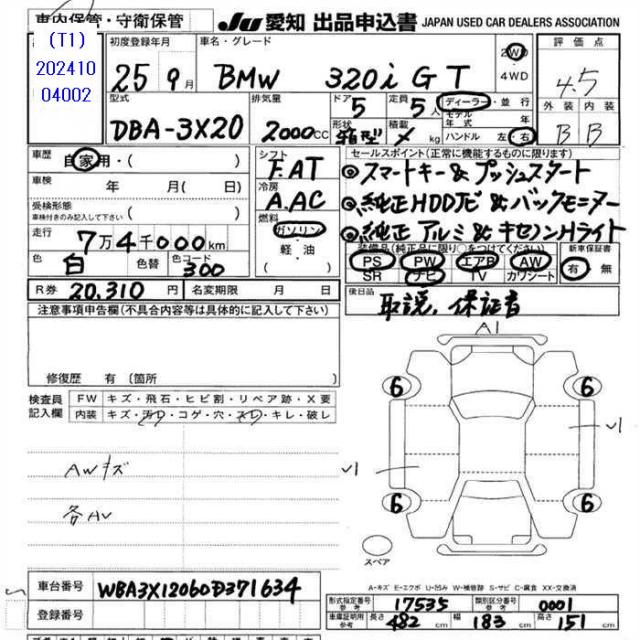 車内保管・守衛保管 JU 愛知 出品申込書 JAPAN USED CAR DEALERS ASSOCIATION
(T1)
202410
04002
初度登録年月 車名・グレード 評価点
25 9月 BMW 320i GT 2WD 4WD 4.5
型式 排気量 ドア 定員 ディーラー・並行 外装 内装
DBA-3X20 2000cc 5 5人 モデル年式 B B
形状 箱型 積載 kg ハンドル 左・右
車歴 自家用・( ) シフト FAT セールスポイント(正常に機能するものに限ります)
車検 年 月(日) 冷房 AAC ◎スマートキー&プッシュスタート
受検形態 ( ) ◎純正HDDナビ&バックモニター
車検付きのみ記入して下さい 燃料 ガソリン・軽・油 ◎純正アルミ&キセノンHライト
走行 7万4千000km 装備品(純正品に限り○をつけてください) 新車保証書
色 白 色替 色コード 300 PS PW エアB AW 有・無
SR ナビ TV カワシート
R券 20,310円 名変期限 月 日 後日品 取説、保証書
注意事項申告欄(不具合内容等は具体的に記入して下さい)
A1
修復歴 有(箇所
検査員記入欄 FW キズ・飛石・ヒビ割・リペア跡・X要
内装 キズ・汚れ・コゲ・穴・スレ・キレ・破レ
6 6
AWキズ
各AU
6 6
スペア
A-キズ E-エクボ U-凹み W-補修跡 S-サビ C-腐食 XX-交換済
車台番号 WBA3X12060D371634
登録番号
形式指定番号 参考 17535 類別区分番号 参考 0001
車庫証明用 参考 長さ 482cm 幅 183cm 高さ 151cm